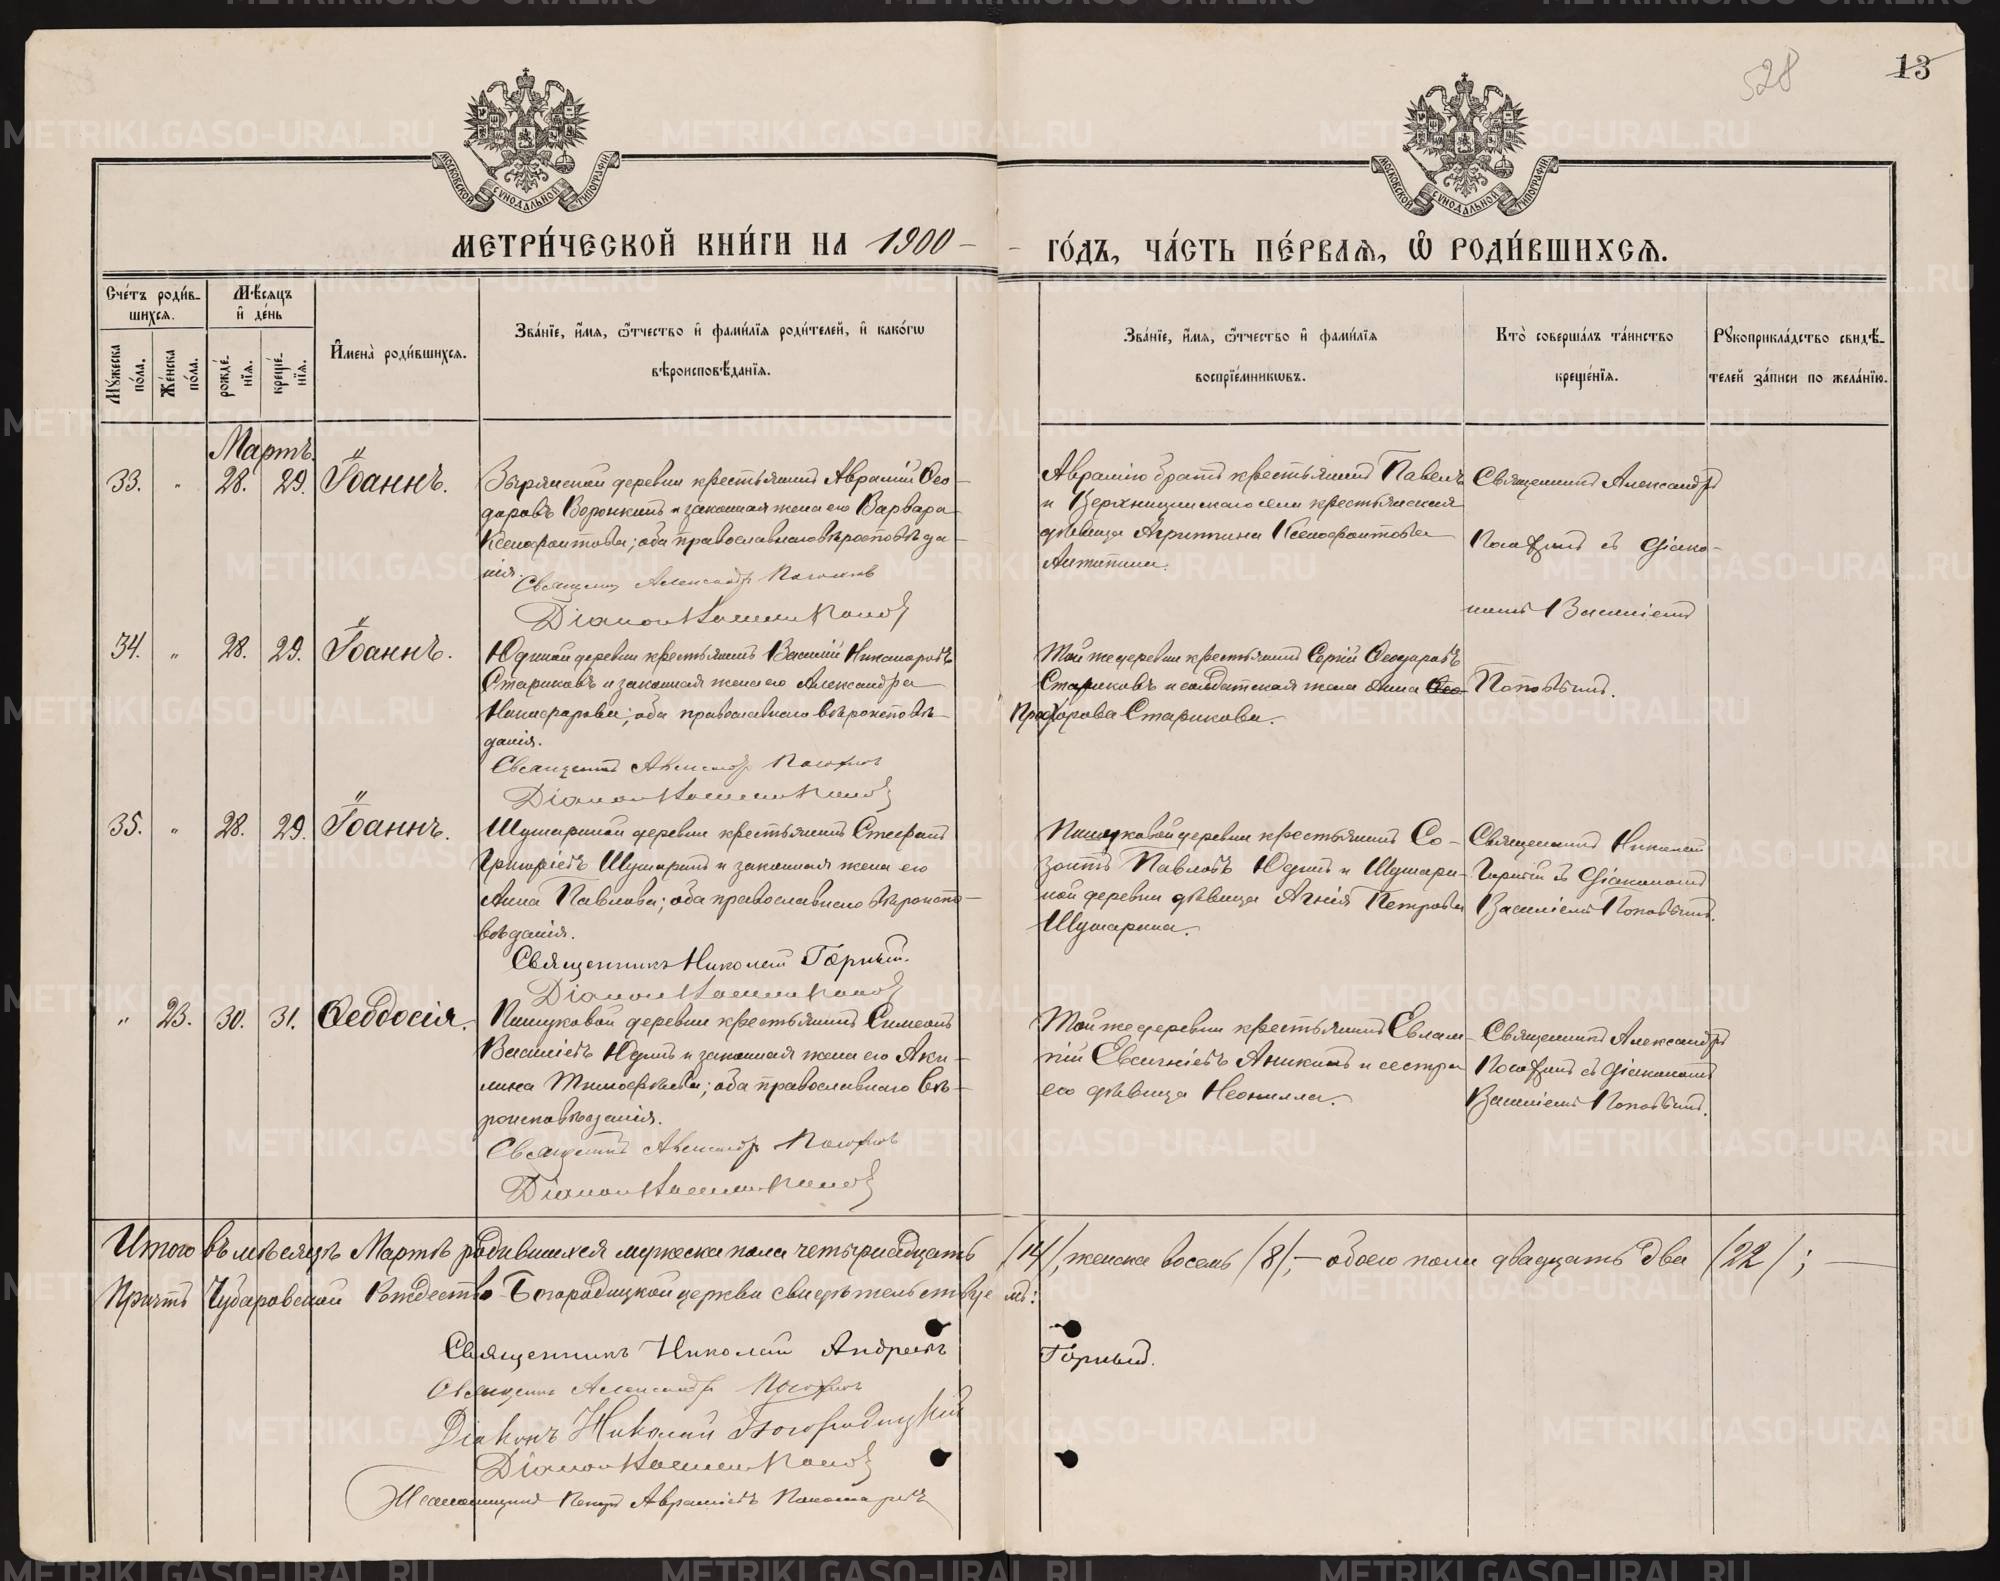 528
13
МОСКОВСКОЙ СѴНОДАЛЬНОЙ ТИПОГРАФІИ
МОСКОВСКОЙ СѴНОДАЛЬНОЙ ТИПОГРАФІИ
МЕТРИ́ЧЕСКОЙ КНИ́ГИ НА 1900 -
- ГО́ДЪ, ЧА́СТЬ ПЕ́РВАѦ, Ѽ РОДИ́ВШИХСѦ.
Сче́тъ роди́в-
шихсѧ.
Мѣ́сѧцъ
и҆ де́нь
Мꙋ́жеска
по́ла.
Же́нска
по́ла.
рожде́-
нїѧ.
креще́-
нїѧ.
И҆мена̀ роди́вшихсѧ.
Зва́нїе, и҆́мѧ, ѻ҆́тчество и҆ фами́лїѧ роди́телей, и҆ како́гѡ
вѣроисповѣ́данїѧ.
Зва́нїе, и҆́мѧ, ѻ҆́тчество и҆ фами́лїѧ
воспрїе́мникѡвъ.
Кто̀ соверша́лъ та́инство
креще́нїѧ.
Рꙋкоприкла́дство свидѣ́-
телей за́писи по жела́нїю.
Мартъ.
33. " 28. 29. Іоаннъ.
деревни крестьянинъ Аврамій Ѳео-
доровъ Воронкинъ и законная жена его Варвара
Ксенофонтова; оба православнаго вѣроисповѣда-
нія.
Священникъ Александръ
Діаконъ Василій Поповъ
Аврамію братъ крестьянинъ Павелъ
и села крестьянская
дѣвица Агриппина Ксенофонтова
Антипина.
Священникъ Александръ
съ діако-
номъ Василіемъ
34. " 28. 29. Іоаннъ.
Юдиной деревни крестьянинъ Василій Никаноровъ
Стариковъ и законная жена его Александра
Никифорова; оба православнаго вѣроисповѣ-
данія.
Священникъ Александръ
Діаконъ Василій Поповъ
Той же деревни крестьянинъ Сергій Ѳеодоровъ
Стариковъ и солдатская жена Анна
Прохорова Старикова.
Поповымъ.
35. " 28. 29. Іоаннъ.
Шушариной деревни крестьянинъ Стефанъ
Григоріевъ Шушаринъ и законная жена его
Анна Павлова; оба православнаго вѣроиспо-
вѣданія.
Священникъ Николай Горный.
Діаконъ Василій Поповъ
деревни крестьянинъ Со-
зонтъ Павловъ Юдинъ и Шушари-
ной деревни дѣвица Агнія Петрова
Шушарина.
Священникъ Николай
Горный съ діакономъ
Василіемъ Поповымъ.
" 23. 30. 31. Ѳеодосія.
деревни крестьянинъ Симеонъ
Василіевъ Юдинъ и законная жена его Аки-
лина Тимофѣева; оба православнаго вѣ-
роисповѣданія.
Священникъ Александръ
Діаконъ Василій Поповъ
Той же деревни крестьянинъ Евлам-
пій Евсигніевъ Аникинъ и сестра
его дѣвица Неонилла.
Священникъ Александръ
съ діакономъ
Василіемъ Поповымъ.
Итого въ мѣсяцѣ Мартѣ родившихся мужеска пола четырнадцать /14/, женска восемь /8/, — обоего пола двадцать два /22/;
Причтъ Чубаровской Рождество-Богородицкой церкви свидѣтельствуемъ:
Священникъ Николай Андреевъ Горный.
Священникъ Александръ
Діаконъ Николай Богородицкій
Діаконъ Василій Поповъ
Псаломщикъ Петръ Авраміевъ
METRIKI.GASO-URAL.RU